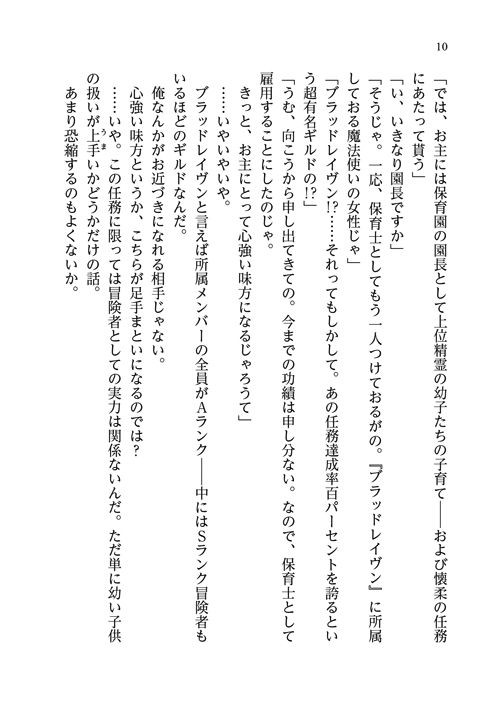 10
「では、お主には保育園の園長として上位精霊の幼子たちの子育て――および懐柔の任務
にあたって貰う」
「い、いきなり園長ですか」
「そうじゃ。一応、保育士としてもう一人つけておるがの。『ブラッドレイヴン』に所属
しておる魔法使いの女性じゃ」
「ブラッドレイヴン!?……それってもしかして。あの任務達成率百パーセントを誇るとい
う超有名ギルドの!?」
「うむ、向こうから申し出てきての。今までの功績は申し分ない。なので、保育士として
雇用することにしたのじゃ。
きっと、お主にとって心強い味方になるじゃろうて」
……いやいやいや。
ブラッドレイヴンと言えば所属メンバーの全員がAランク――中にはSランク冒険者も
いるほどのギルドなんだ。
俺なんかがお近づきになれる相手じゃない。
心強い味方というか、こちらが足手まといになるのでは？
……いや。この任務に限っては冒険者としての実力は関係ないんだ。ただ単に幼い子供
の扱いが上手いかどうかだけの話。
あまり恐縮するのもよくないか。